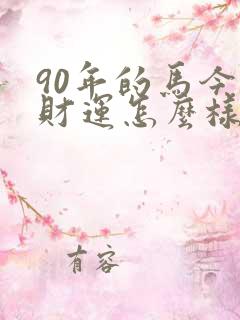 90年的馬今
財運怎麼樣
有容